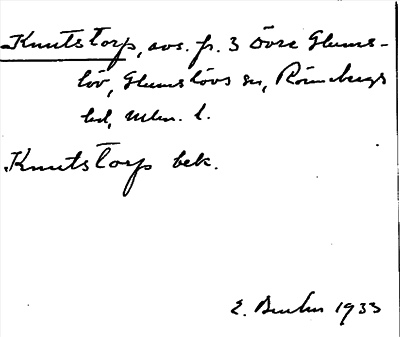 Knutstorp, avs. fr. 3 Övre Glums-
löv, Glumslövs sn, Rönnebergs
hd, Mlm. l.
Knutstorp bek.
E. 1933